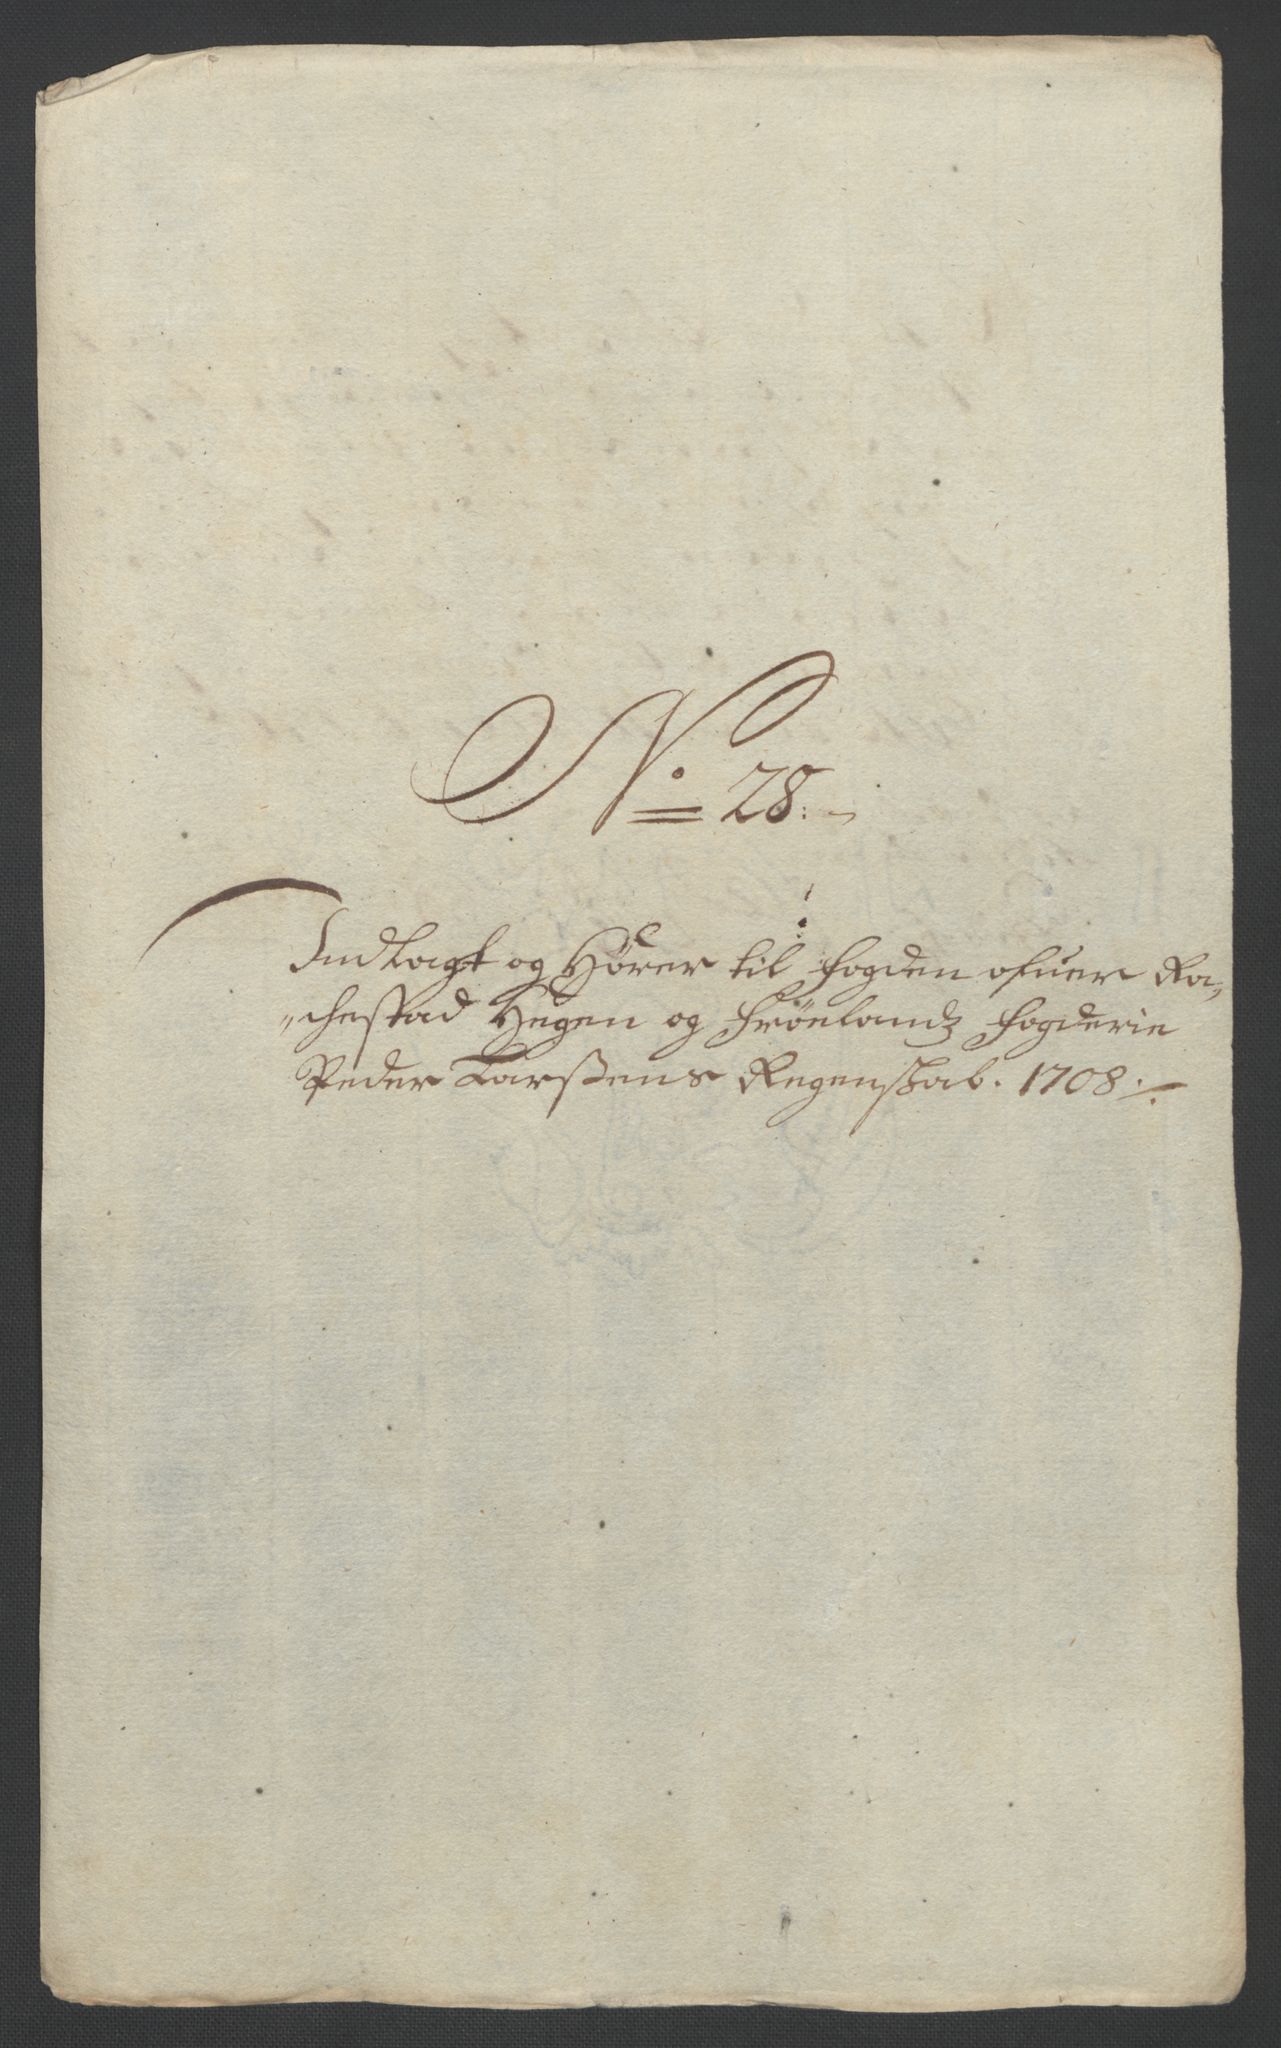 No 28.
Indlagt og Hörer til fogden ofuer Ra,,
,,chestad Heggen og Fröelandz fogderie
Peder Larßens Regenskab. 1708./.